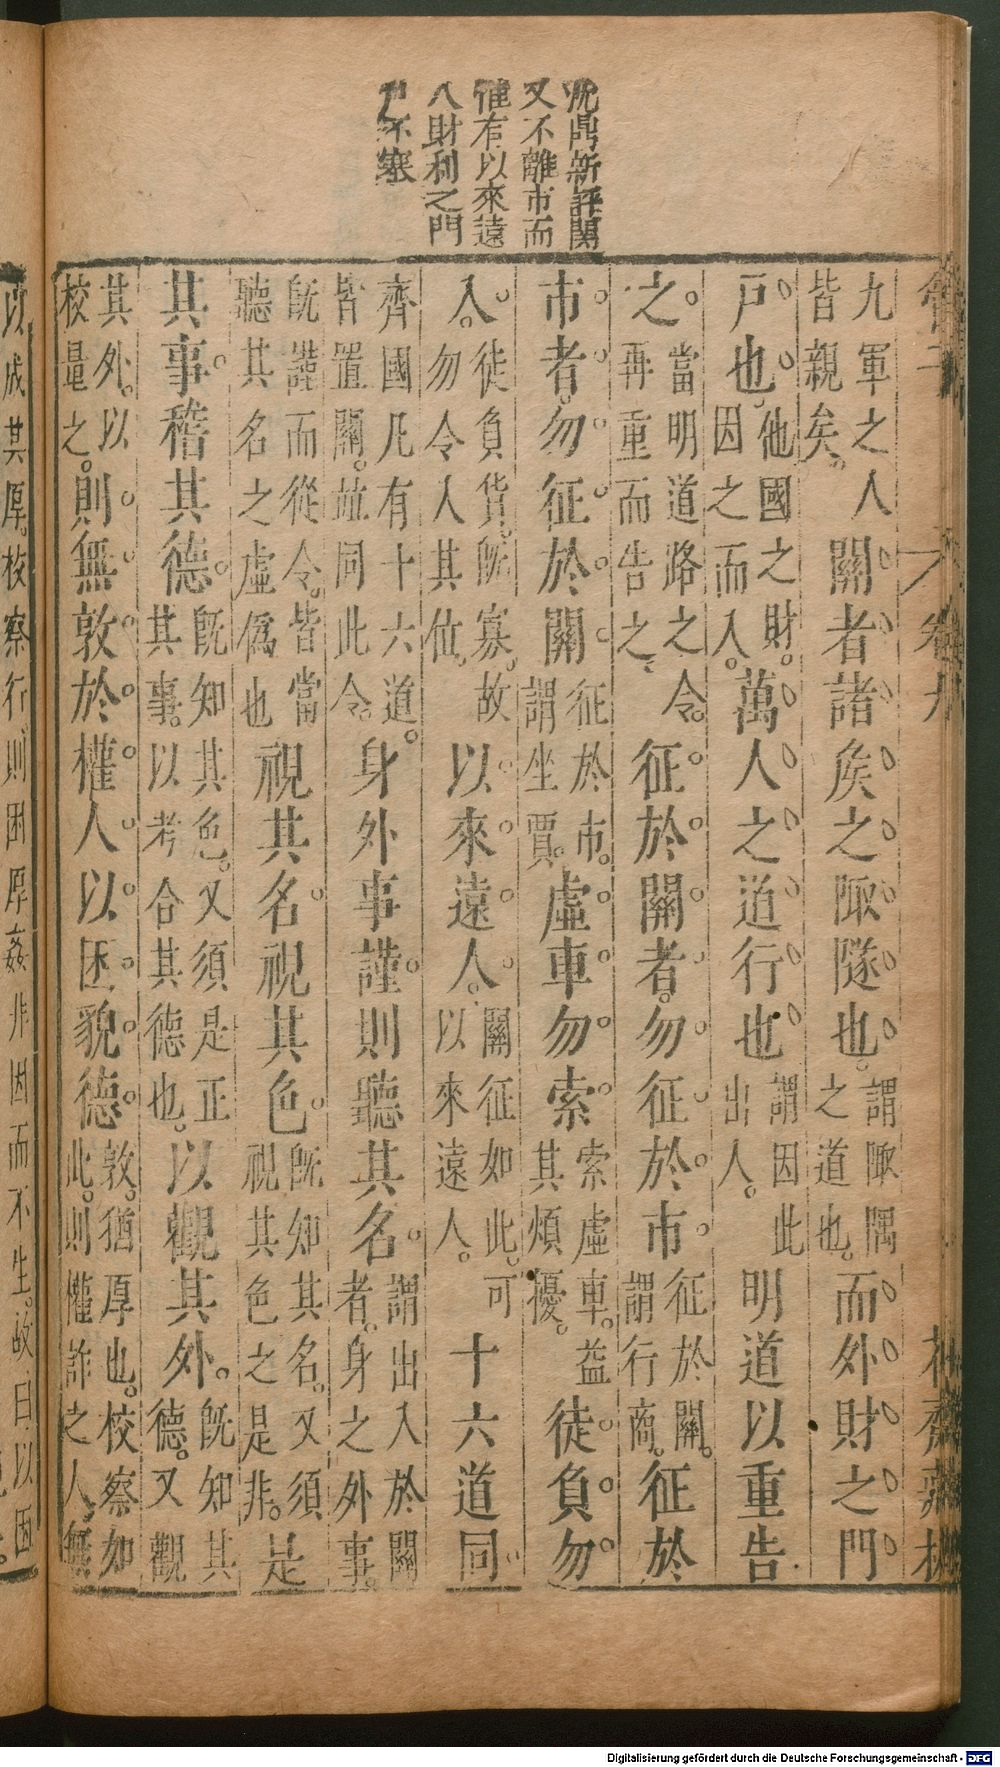 沈鼎新評關
又不離市而
僅有以來遠
人財利之門
不塞
管子
卷九
花齋藏板
九軍之人皆親矣。關者諸矦之陬隧也。謂陬隅之道也。而外財之門
戸也。他國之財。因之而入。萬人之道行也謂因此出入。明道以重告
之。當明道路之令。再重而告之、征於關者。勿征於市。征於關。謂行商。征於
市者。勿征於關征於市。謂坐賈。虛車勿索。索虛車。益其煩擾。徒負勿
入。徒負貨。旣寡。故勿令人其㑏。以來遠人。關征如此。可以來遠人。十六道同
齊國凡有十六道。皆置關。並同此令。身外事謹則聽其名。謂出入於關者。身之外事。
旣謹而從令。皆當聽其名之虛僞也視其名視其色。旣知其名。又須視其色之是非。是
其事。稽其德。旣知其色。又須是正其事。以考合其德也。以觀其外。旣知其德。又觀
其外。以校量之。則無敦於權人以困貌德。敦。猶厚也。校察如此。則權詐之人無
以成其厚。校察行則困厚姦非因而不生。故曰以困
Digitalisierung gefördert durch die Deutsche Forschungsgemeinschaft - DFG